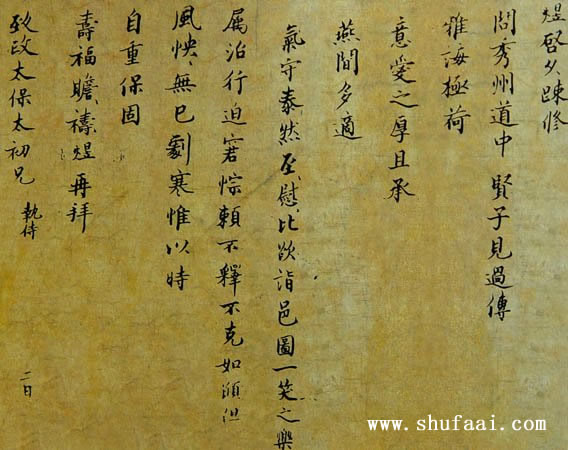 煜啓久疎修
問秀州道中賢子見過傳
雅海極荷
意愛之厚且承
燕閒多適
氣守泰然至慰比欲詣邑圖一笑之樂
属治行迫窘悰賴不釋不克如願但
風怏無已劇寒惟以時
自重保固
壽福瞻禱煜再拜
致政太保太初兄執侍
二日
www.shufaai.com